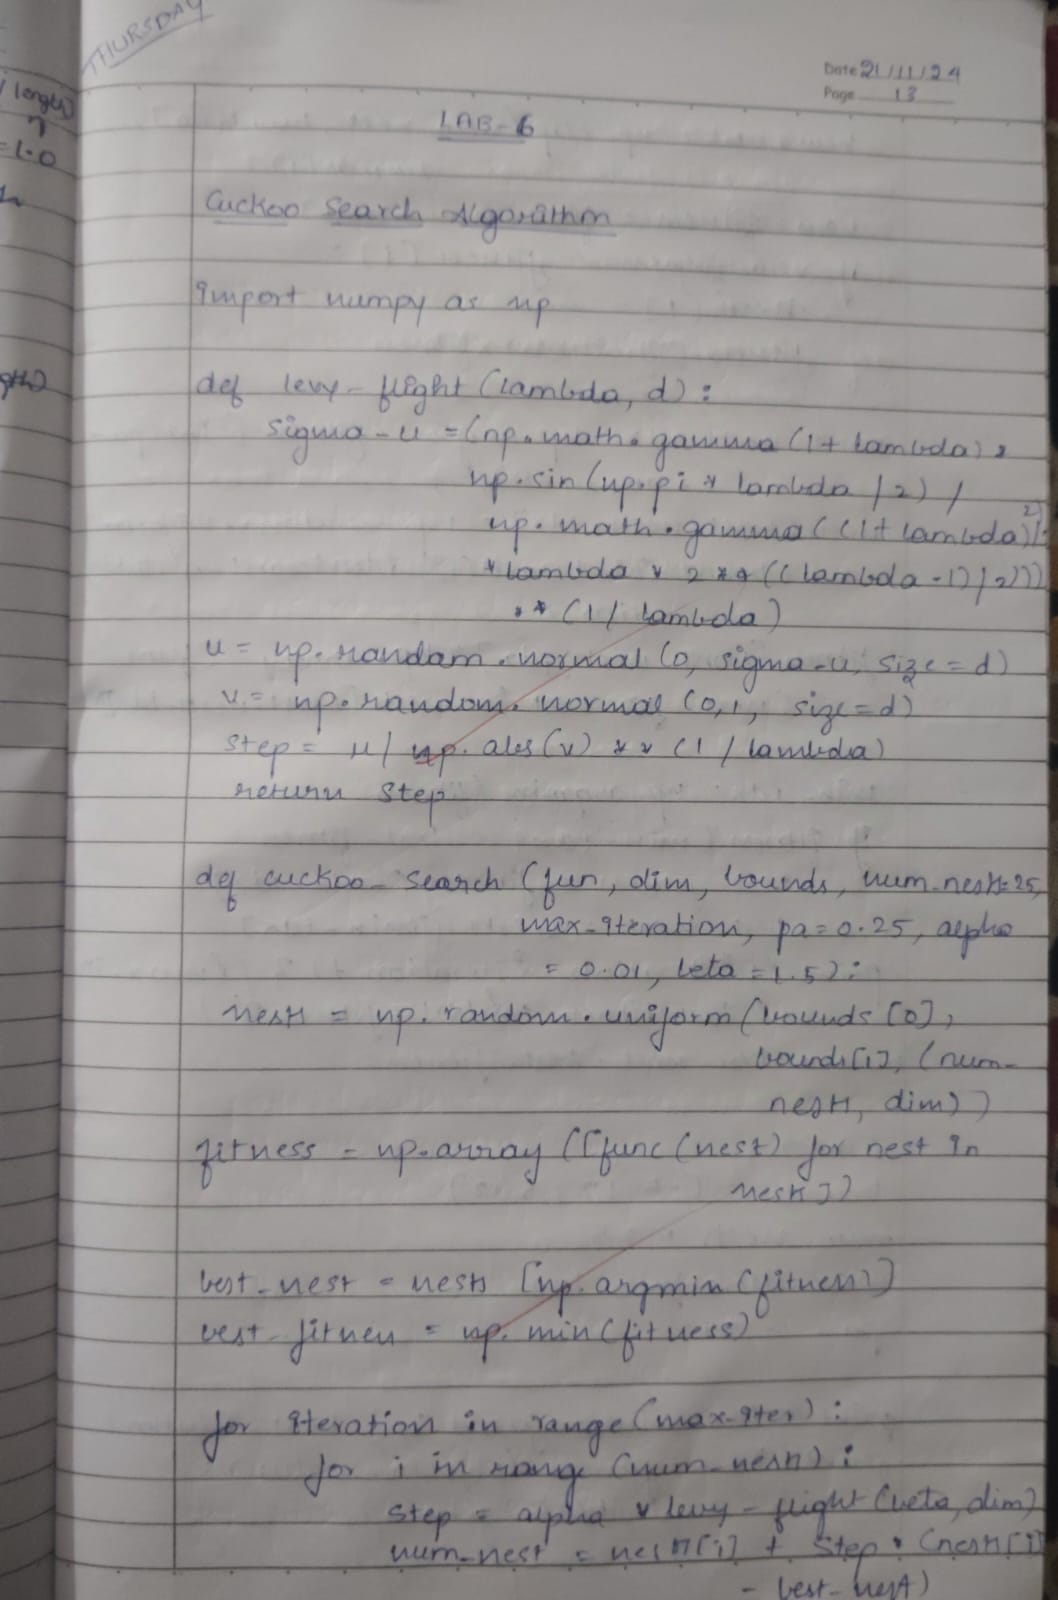 THURSDAY
Date 21/11/24
Page 13
length)
= 1.0
gth)
LAB-6
Cuckoo Search Algorithm
import numpy as np
def levy_flight (lambda, d):
sigma_u = (np.math.gamma (1 + lambda) *
np.sin (np.pi * lambda / 2) /
np.math.gamma ((1 + lambda)/2)
* lambda * 2 ** ((lambda - 1) / 2)))
** (1 / lambda)
u = np.random.normal (0, sigma_u, size = d)
v = np.random.normal (0,1, size = d)
step = u / np.abs(v) ** (1 / lambda)
return step
def cuckoo_search (fun, dim, bounds, num_nests=25,
max_iteration, pa = 0.25, alpha
= 0.01, beta = 1.5):
nests = np.random.uniform (bounds [0],
bounds[1], (num-
nests, dim))
fitness = np.array ([func (nest) for nest in
nests])
best_nest = nests [np.argmin (fitness)]
best_fitness = np.min (fitness)
for iteration in range (max_iter):
for i in range (num_nests):
step = alpha * levy_flight (beta, dim)
num_nest = nests[i] + step * (nests[i]
- best_nest)